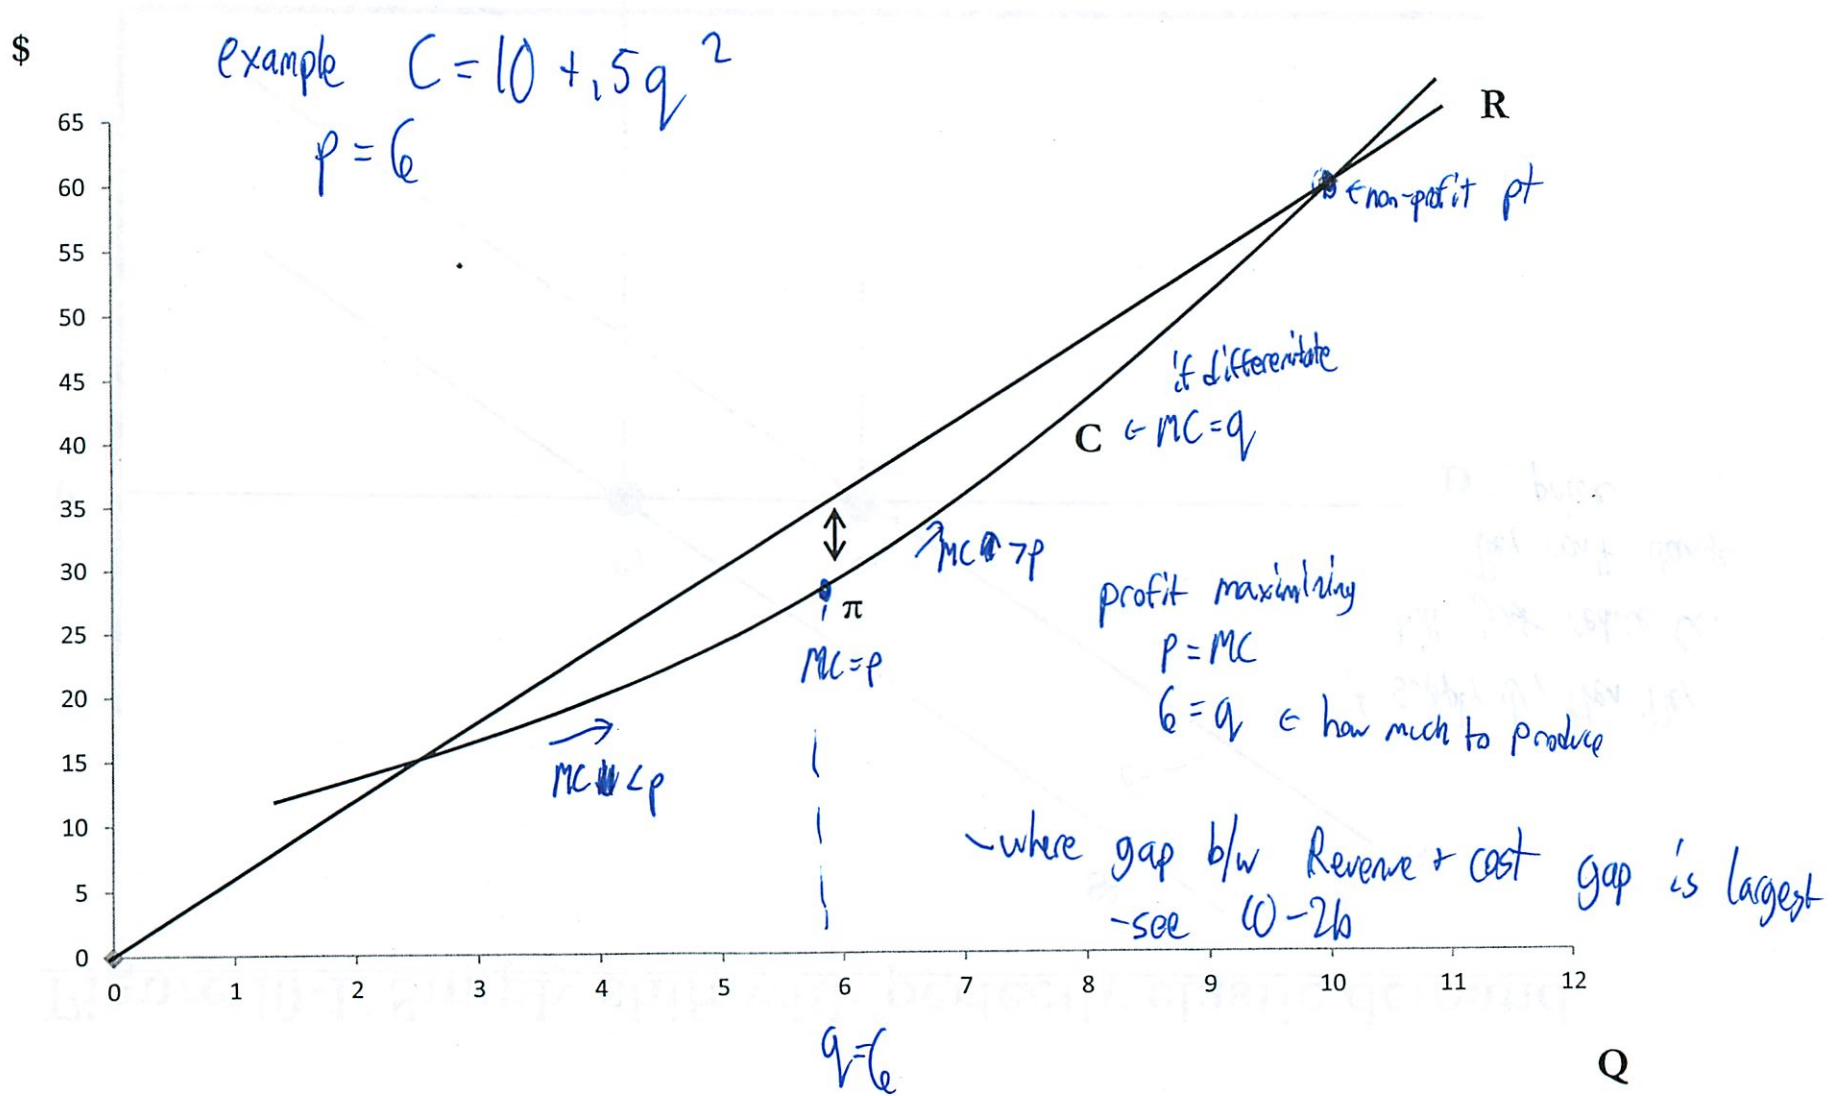 $
example C = 10 + .5q²
p = 6
65
60
55
50
45
40
35
30
25
20
15
10
5
0
R
←non-profit pt
if differenitate
C ← MC = q
↗MC >p
π
MC=p
→
MC <p
profit maximizing
P = MC
6 = q ← how much to produce
-where gap b/w Revenue + cost gap is largest
-see 10-2b
0 1 2 3 4 5 6 7 8 9 10 11 12
q=6
Q